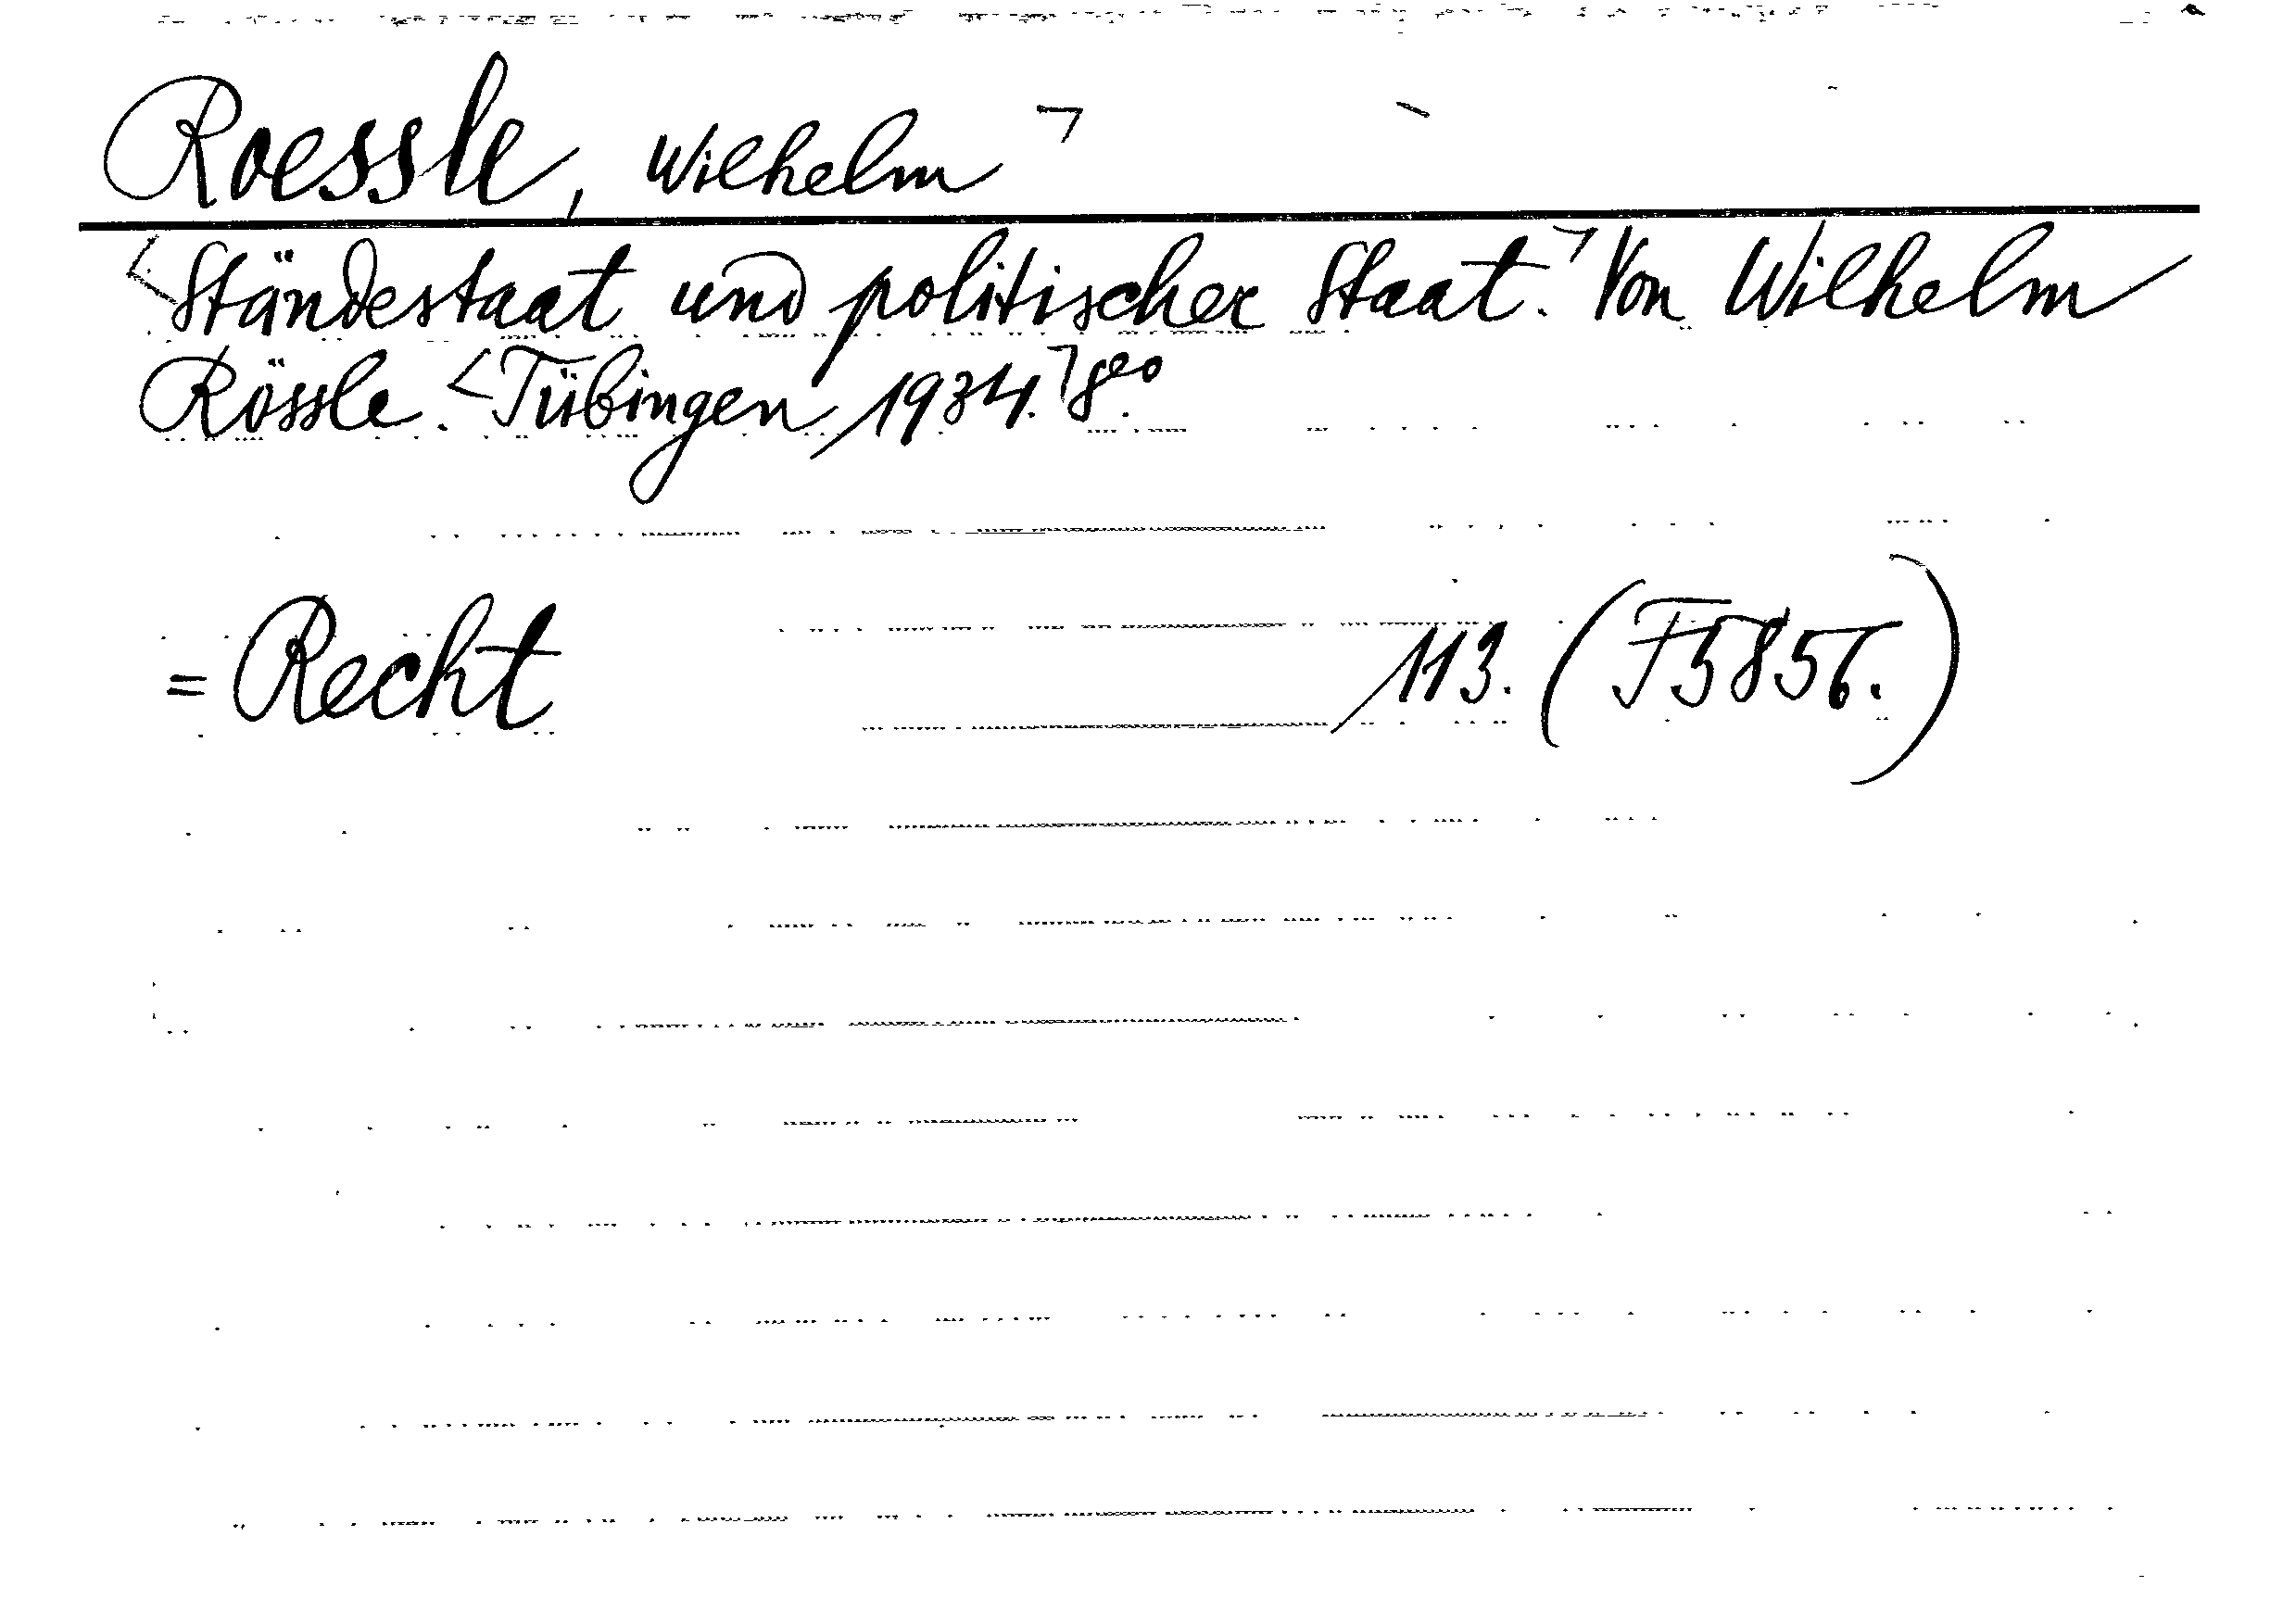 Roessle, Wilhelm ¬
<Ständestaat und politischer Staat.¬ Von Wilhelm
Rössle. <Tübingen 1934.¬ 8eo.
= Recht 113. (F5856.)